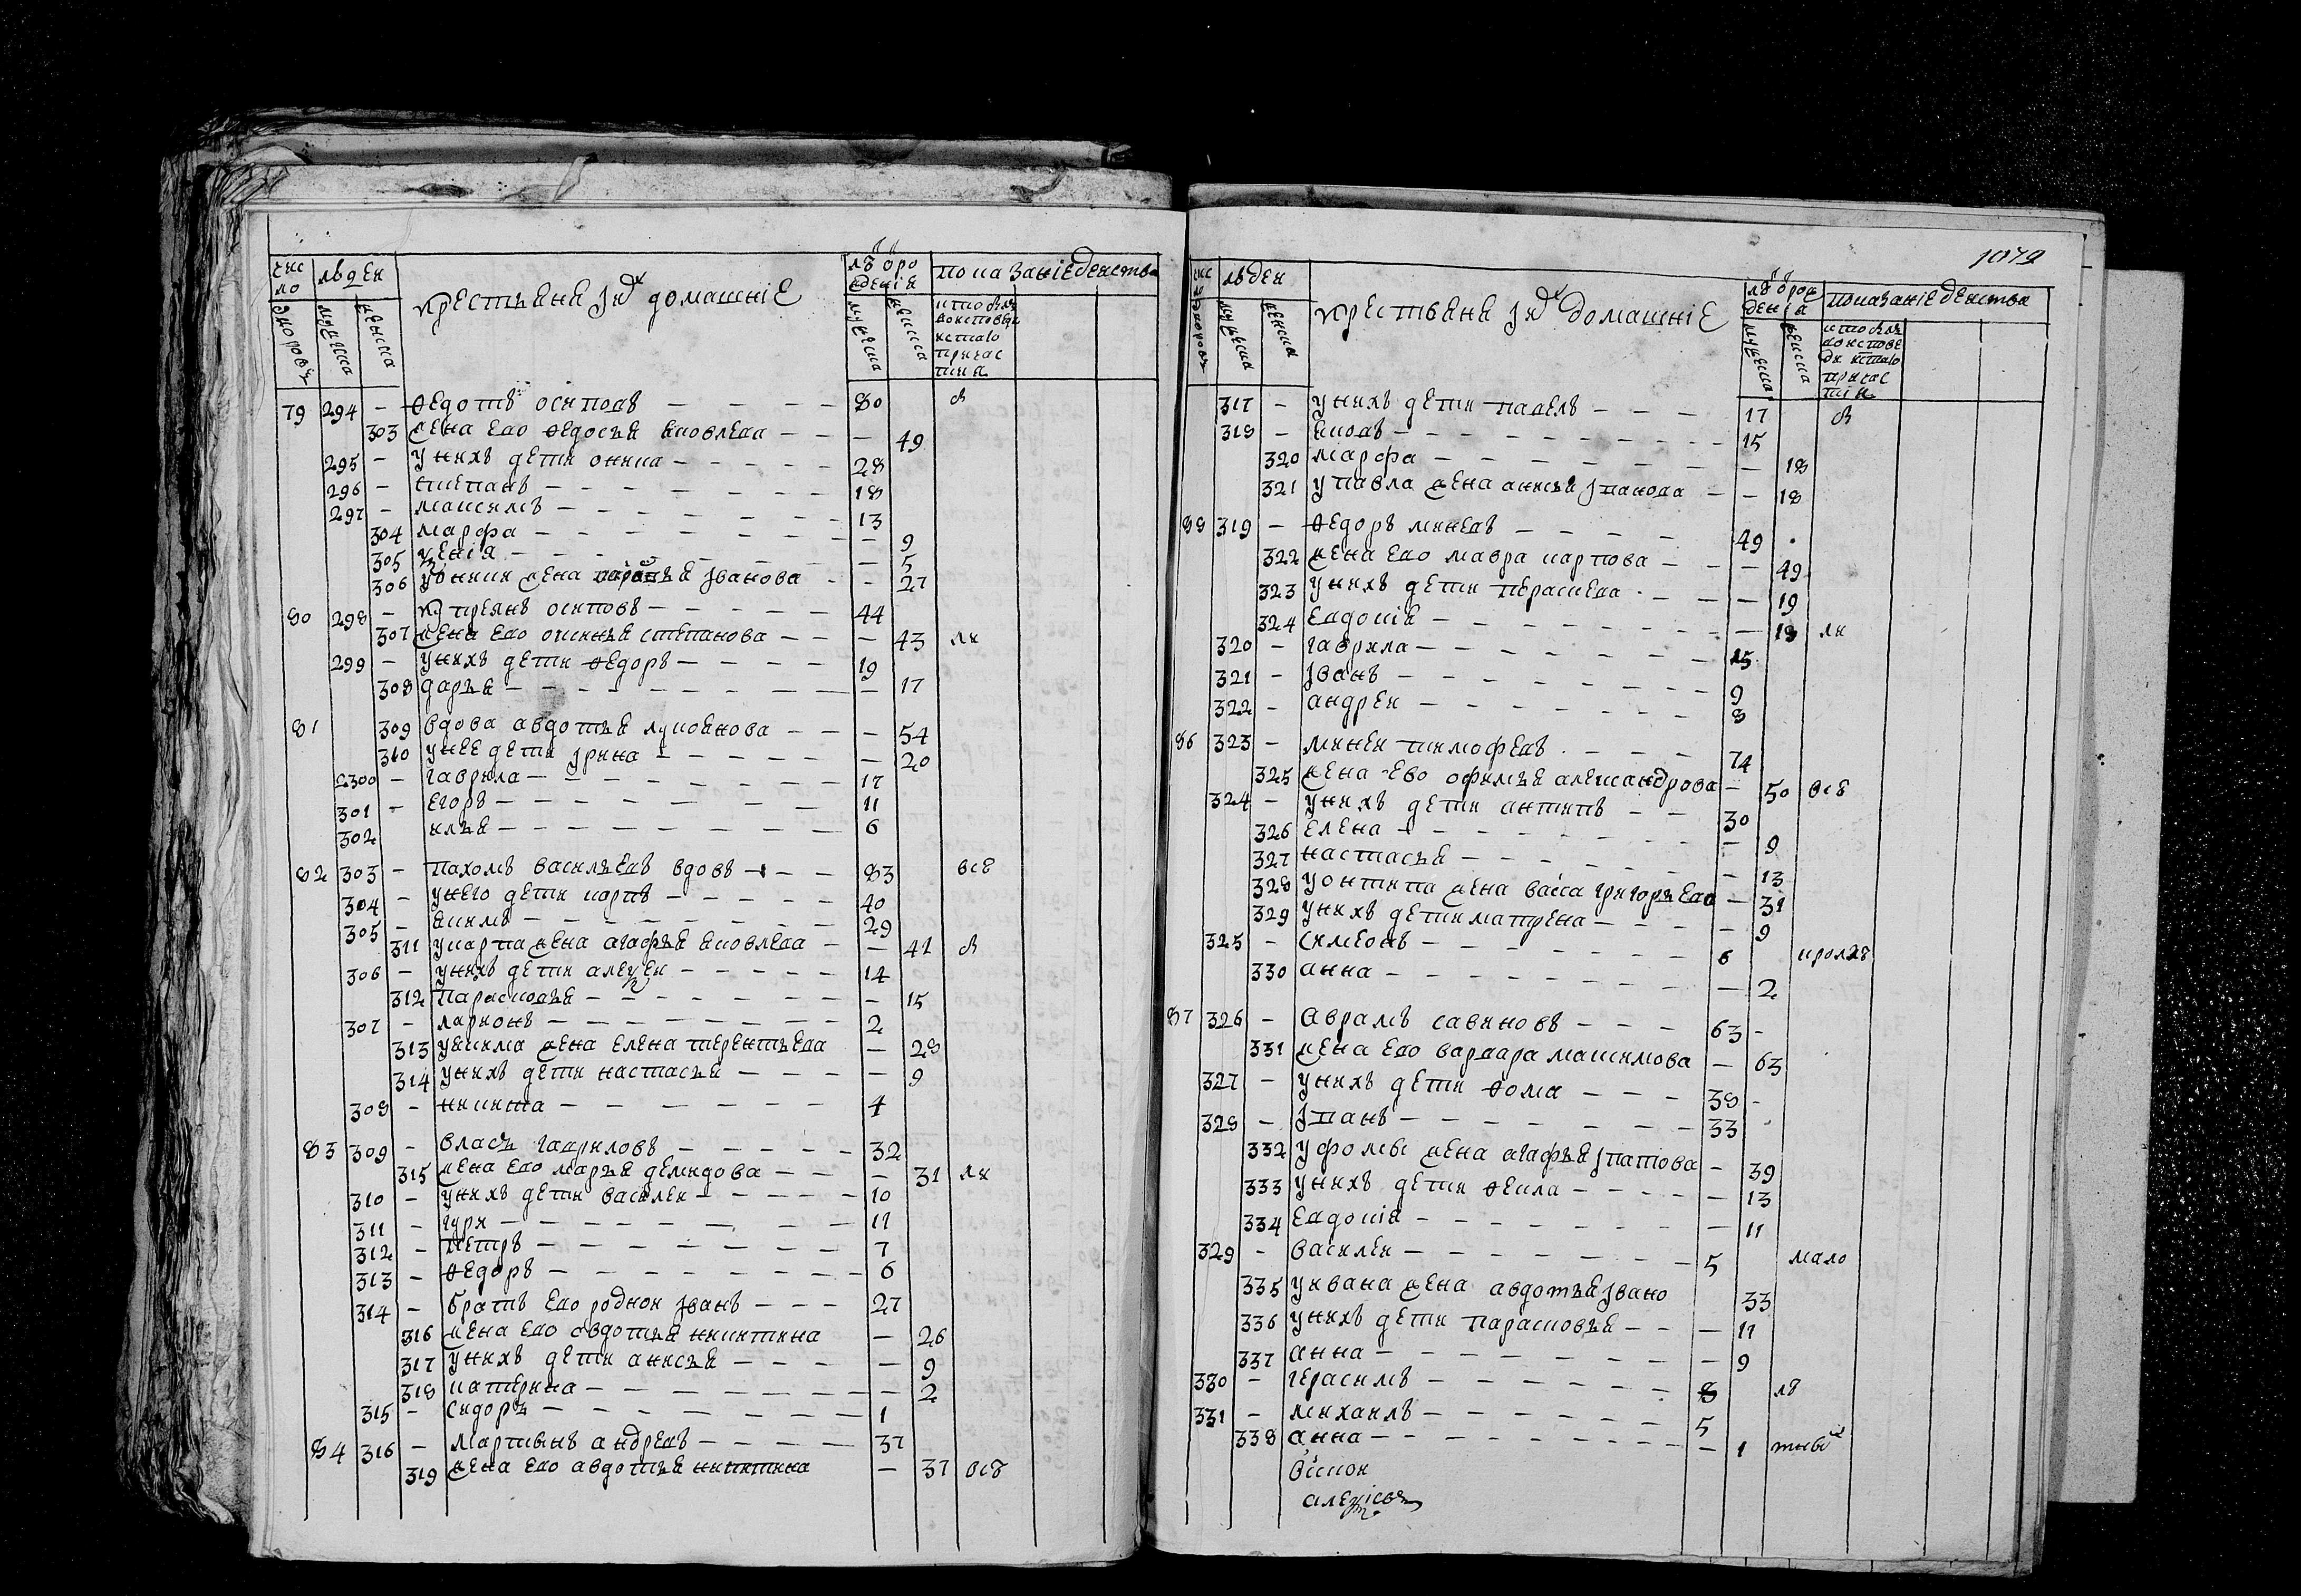 число людей крестьяне и их домашние лет от рождения показание действа
дворов мужеска женска мужеска женска кто был во исповеди и с то причастия
79 294 – Ѳедотъ осиповъ – 80
303 жена ево ѳедосья яковлева – 49
295 – у нихъ дети оника – 28
296 – степанъ – 18
297 – максимъ – 13
304 марфа – 9
305 ѯения – 5
306 у оники жена иванова – 27
80 298 – куприянъ осиповъ – 44
307 жена ево оксинья степанова – 43 ли
299 – у нихъ дети ѳедоръ – 19
308 дарья – 17
81 309 вдова авдотья лукоянова – 54
310 у нее дети ирина – 20
300 – гаврила – 17
301 – егоръ – 11
302 илья – 6
82 303 – пахомъ васильевъ вдовъ – 83 все
304 – у него дети карпъ – 40
305 – якимъ – 29
311 у карпа жена агафья яковлева – 41 в
306 – у нихъ дети алеѯеи – 14
312 парасковья – 15
307 – ларионъ – 2
313 у якима жена елена терентьева – 28
314 у нихъ дети настасья – 9
308 – никита – 4
83 309 – власъ гавриловъ – 32
315 жена ево марья демидова – 31 ли
310 – у нихъ дети василеи – 10
311 – гури – 11
312 – петръ – 7
313 – ѳедоръ – 6
314 – братъ ево роднои иванъ – 27
316 жена ево овдотья никитина – 26
317 у нихъ дети анисья – 9
318 катерина – 2
315 – сидоръ – 1
84 316 – мартинъ андреевъ – 37
319 жена ево авдотья никитина – 37 все
1079
людей крестьяне и их домашние лет от рождения показание действа
317 – у нихъ дети павелъ – 17 в
318 – яковъ – 15
320 марфа – 18
321 у павла жена анисья – 18
319 – ѳедоръ минеевъ – 49
322 жена ево мавра карпова – 49
323 у нихъ дети – 19
324 евдокия – 18 ли
320 – гаврила – 15
321 – иванъ – 9
322 – андреи – 8
86 323 – минеи тимофеевъ – 74
325 жена ево офимья александрова – 50 все
324 – у нихъ дети антипъ – 30
326 елена – 9
327 настасья – 13
328 у онтипа жена васса григорьева – 31
329 у нихъ дети матрена – 9
325 – симеонъ – 6 кроме
330 анна – 2
87 326 – аврамъ савиновъ – 63
331 жена ево варвара максимова – 63
327 – у нихъ дети ѳома – 38
328 – – 33
332 у фомы жена агафья ипатова – 39
333 у нихъ дети ѳекла – 13
334 евдокия – 11
329 – василеи – 5 мало
335 у ивана жена авдотья ивано 33
336 у нихъ дети парасковья – 11
337 анна – 9
330 – герасимъ – 8 ле
331 – михаилъ – 5
338 анна – 1 тныхъ